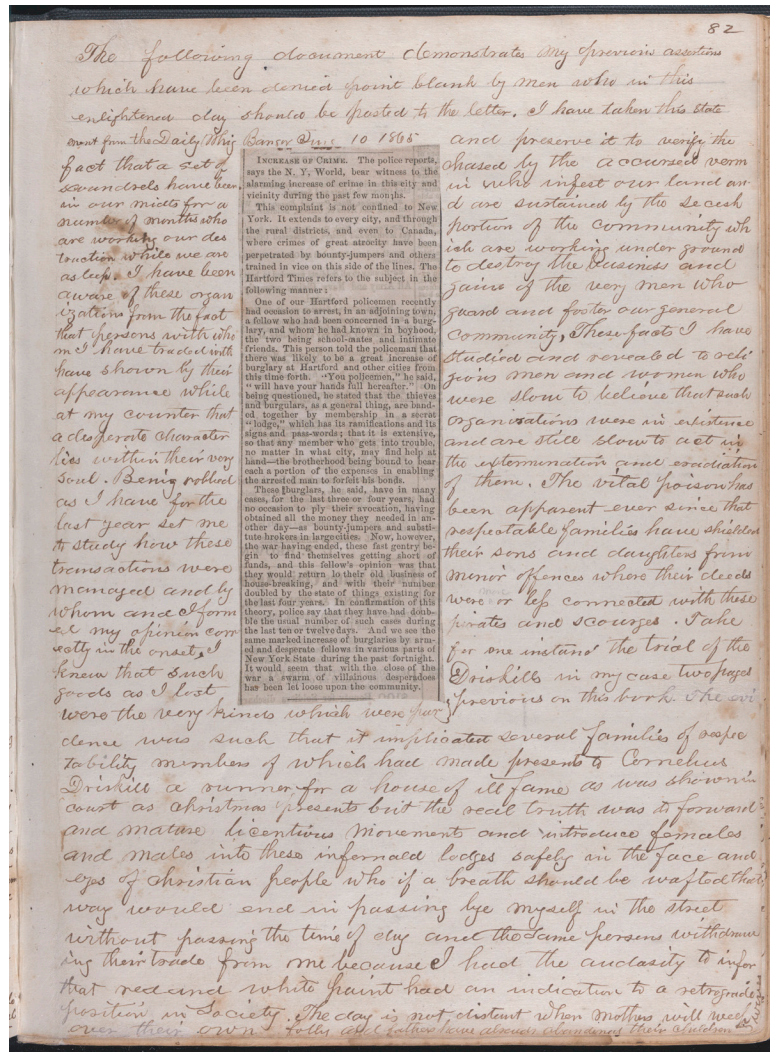 82
The following document demonstrates my previous assertions
which have been denied point blank by men who in this
enlightened day should be posted to the letter. I have taken this state
ment from the Daily Whig Bangor June 10 1865
fact that a set of
scoundrels have been
in our midts for a
number of months who
are working our des
truction while we are
asleep. I have been
aware of these organ
izations from the fact
that persons with who
m I have traded with
have shown by their
appearance while
at my counter that
a desperate character
lies within their very
soul. Being robbed
as I have for the
last year set me
to study how these
transactions were
managed and by
whom and I form
ed my opinion corr
ectly in the onset, I
knew that such
goods as I lost
were the very kinds which were pur
INCREASE OF CRIME. The police reports,
says the N. Y. World, bear witness to the
alarming increase of crime in this city and
vicinity during the past few months.
This complaint is not confined to New
York. It extends to every city, and through
the rural districts, and even to Canada,
where crimes of great atrocity have been
perpetrated by bounty-jumpers and others
trained in vice on this side of the lines. The
Hartford Times refers to the subject in the
following manner:
One of our Hartford policemen recently
had occasion to arrest, in an adjoining town,
a fellow who had been concerned in a burg-
lary, and whom he had known in boyhood,
the two being school-mates and intimate
friends. This person told the policeman that
there was likely to be a great increase of
burglary at Hartford and other cities from
this time forth. "You policemen," he said,
"will have your hands full hereafter." On
being questioned, he stated that the thieves
and burgulars, as a general thing, are band-
ed together by membership in a secret
"lodge," which has its ramifications and its
signs and pass-words; that it is extensive,
so that any member who gets into trouble,
no matter in what city, may find help at
hand—the brotherhood being bound to bear
each a portion of the expenses in enabling
the arrested man to forfeit his bonds.
These burglars, he said, have in many
cases, for the last three or four years, had
no occasion to ply their avocation, having
obtained all the money they needed in an-
other day—as bounty-jumpers and substi-
tute brokers in largecities. Now, however,
the war having ended, these fast gentry be-
gin to find themselves getting short of
funds, and this fellow's opinion was that
they would return to their old business of
house-breaking, and with their number
doubled by the state of things existing for
the last four years. In confirmation of this
theory, police say that they have had doub-
ble the usual number of such cases during
the last ten or twelve days. And we see the
same marked increase of burglaries by arm-
ed and desperate fellows in various parts of
New York State during the past fortnight.
It would seem that with the close of the
war a swarm of villainous desperadoes
has been let loose upon the community.
and preserve it to verify the
chased by the accursed verm
in who infest our land an
d are sustained by the secesh
portion of the community wh
ich are working under ground
to destroy the Business and
gains of the very men who
guard and foster our general
community, These facts I have
studied and revealed to reli
gious men and women who
were slow to believe that such
organisations were in existence
and are still slow to act in
the extermination and eradiation
of them. The vital poison has
been apparent ever since that
respectable families have shielded
their sons and daughters from
minor offences where their deeds
were or less connected with these
perates and scourges. Take
for one instand the trial of the
Driskills in my case two pages
previous on this book. The evi
dence was such that it implicated several families of respec
tability, members of which had made presents to Cornelius
Driskill a runner for a house of ill fame as was shown in
court as christmas presents but the real truth was to forward
and mature licentious movements and introduce females
and males into these infernald lodges safely in the face and
eyes of christian people who if a breath should be wafted that
way would end in passing bye myself in the street
without passing the time of day and the same persons withdraw
ing their trade from me because I had the audasity to infor
that red and white paint had an indication to a retrograde
position in Society. The day is not distant when mothers will weep
over their own folly and fathers have already abandoned their children